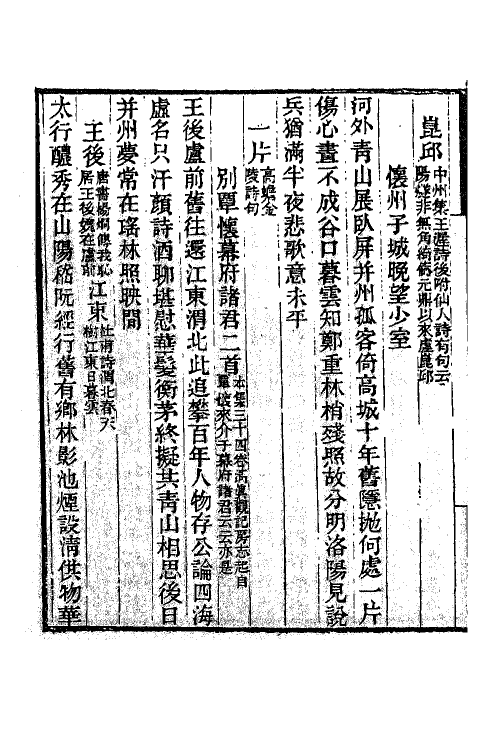 崑邱中州集王㢒詩後附仙人詩有句云
陽燧非無角猗儔元鼎以來虛崑邱
懷州子城晚望少室
河外青山展臥屏并州孤客倚高城十年舊隱拋何處一片
傷心畫不成谷口暮雲知鄭重林梢殘照故分明洛陽見說
兵猶滿半夜悲歌意未平
一片高蟾金
陵詩句
別覃懷幕府諸君二首本集三十四卷高眞觀記房志起自
覃懷來介于幕府諸君云云亦是
王後盧前舊往還江東渭北此追攀百年人物存公論四海
虛名只汗顏詩酒聊堪慰華髮衡茅終擬共青山相思後日
并州夢常在瑤林照映間
王後唐書楊炯傳我恥
居王後媿在盧前江東杜甫詩渭北春天
樹江東日暮雲
太行醲秀在山陽嵇阮經行舊有鄉林影池煙設清供物華